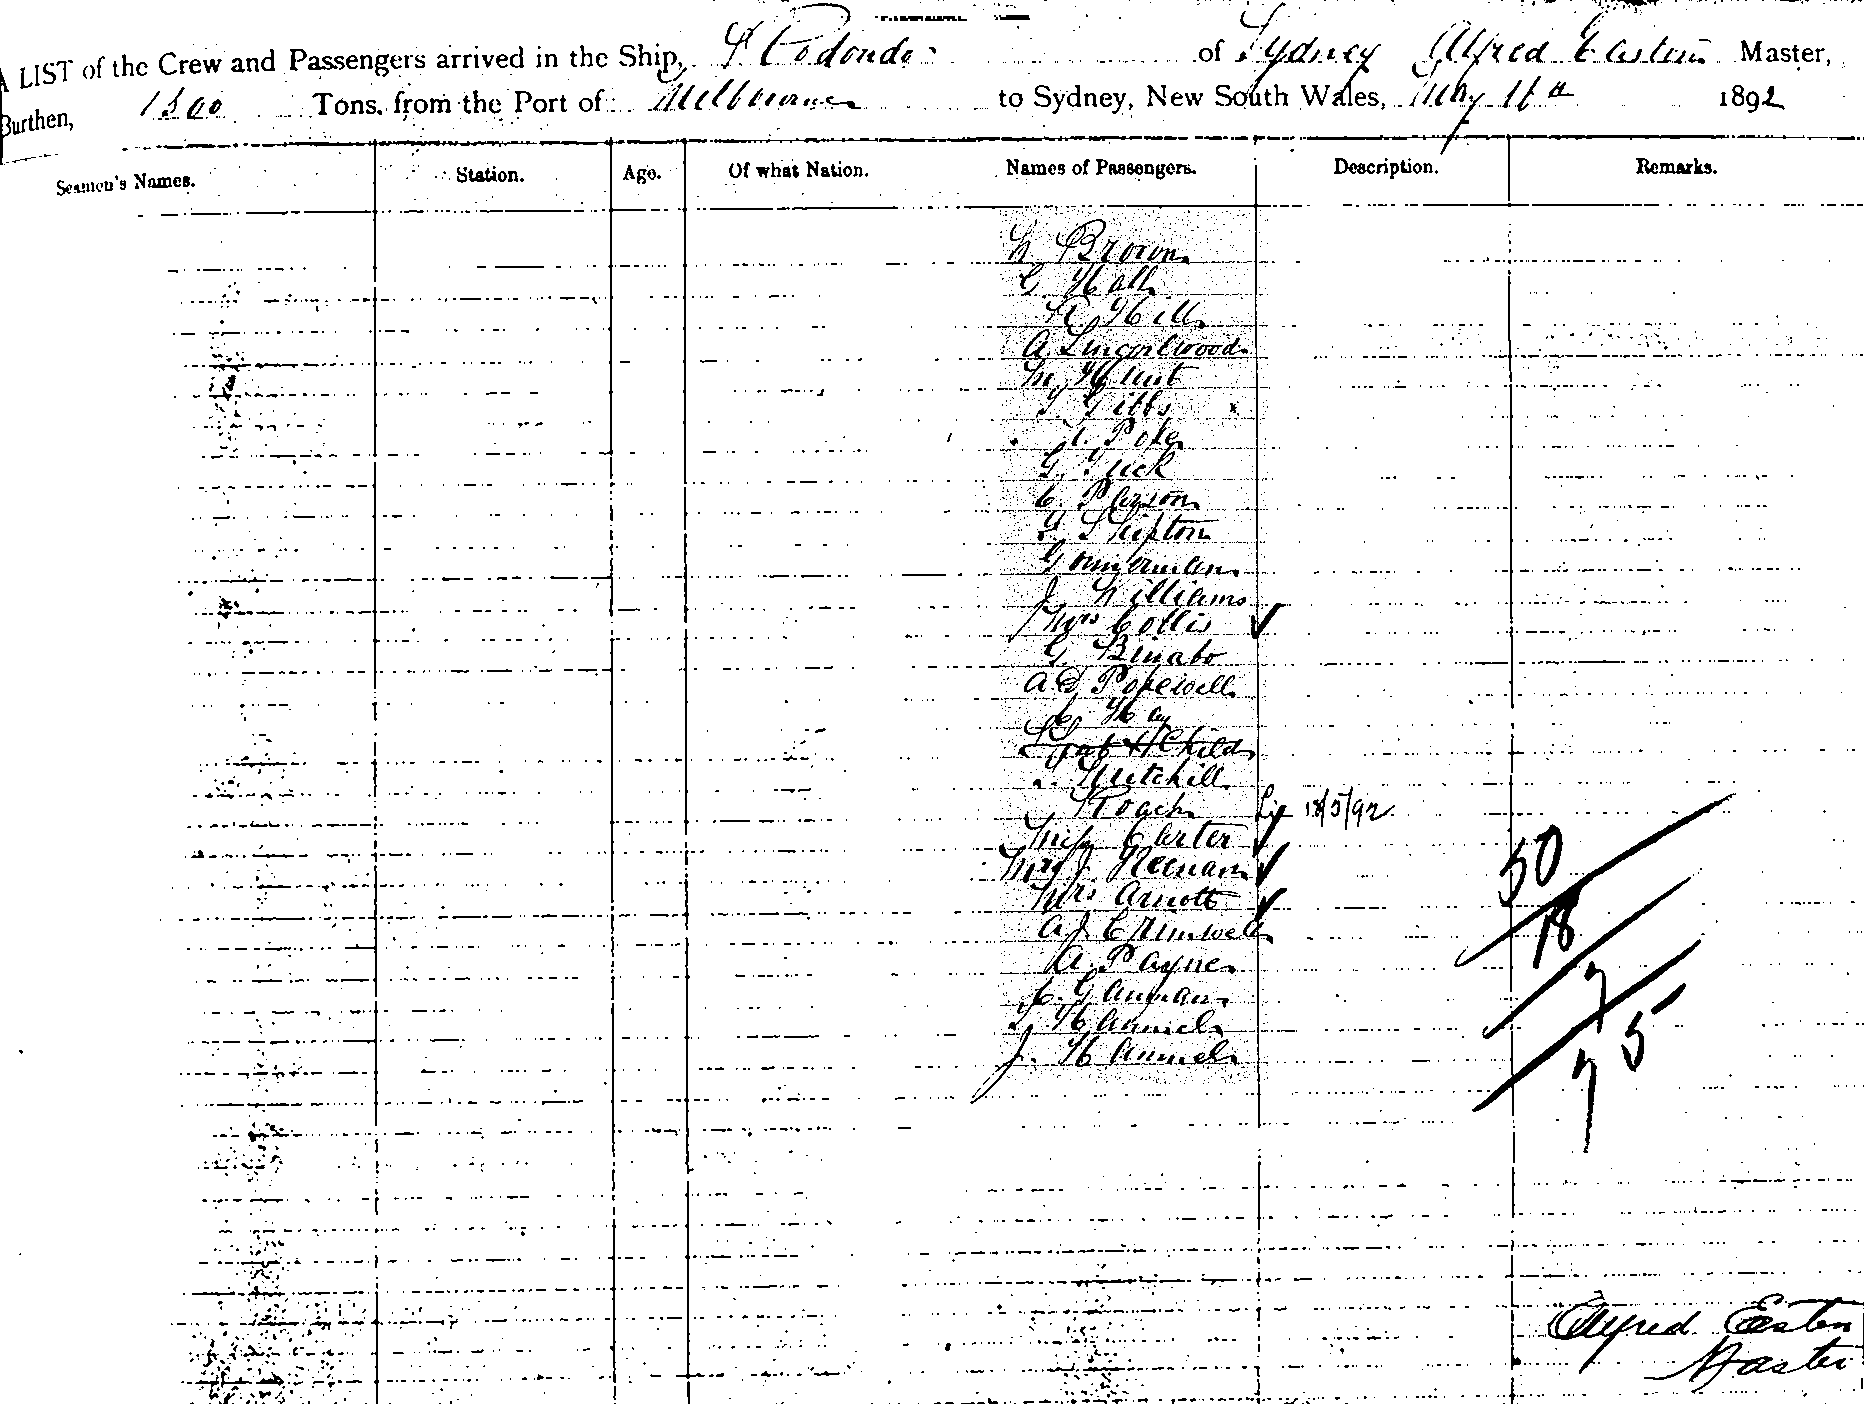 A LIST of the Crew and Passengers arrived in the Ship, Rodondo of Sydney Alfred Easten Master,
Burthen, 1500 Tons. from the Port of Melbourne to Sydney, New South Wales, May 1892
Seamen's Names. Station. Age. Of what Nation. Names of Passengers. Description. Remarks.
Brown
G Hall
Hill
A
M Hunt
Gibbs
Pope
G Tuck
C Parson
Shipton
J Williams
Mrs Collis ✓
G Binabo
A D Popewell
C. Hay
Child
Mitchill
Roach 18/5/92
Miss Carter ✓
50
Mrs J Keenan ✓
Mrs Arnott ✓
18
A J
A. Payne
7
C. Ganman
Hannel
75
J. Hannel
Alfred Easten
Master